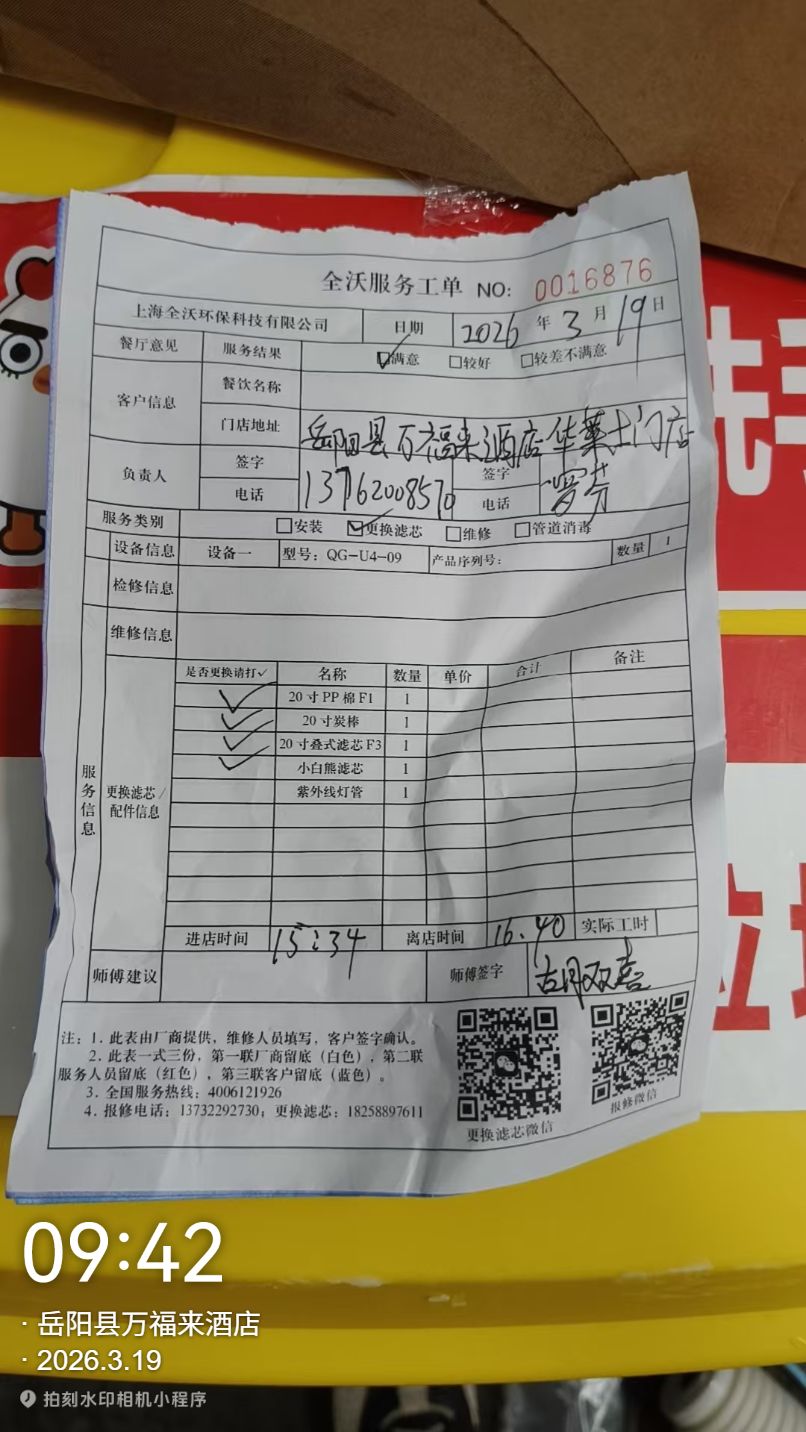 全沃服务工单 NO: 0016876
上海全沃环保科技有限公司 日期 2026年3月19日
餐厅意见 服务结果 ☑满意 □较好 □较差不满意
客户信息 餐饮名称
门店地址 岳阳县万福来酒店华莱士门店
负责人 签字 签字
电话 13762008570 电话
服务类别 □安装 ☑更换滤芯 □维修 □管道消毒
设备信息 设备一 型号：QG-U4-09 产品序列号： 数量 1
检修信息
维修信息
服务信息
更换滤芯/配件信息
是否更换请打✓ 名称 数量 单价 合计 备注
✓ 20寸PP棉F1 1
✓ 20寸炭棒 1
✓ 20寸叠式滤芯F3 1
✓ 小白熊滤芯 1
紫外线灯管 1
进店时间 15:34 离店时间 16.40 实际工时
师傅建议 师傅签字 胡双喜
注：1. 此表由厂商提供，维修人员填写，客户签字确认。
2. 此表一式三份，第一联厂商留底（白色），第二联
服务人员留底（红色），第三联客户留底（蓝色）。
3. 全国服务热线：4006121926
4. 报修电话：13732292730；更换滤芯：18258897611
更换滤芯微信 报修微信
洗手
垃圾
09:42
· 岳阳县万福来酒店
· 2026.3.19
拍刻水印相机小程序